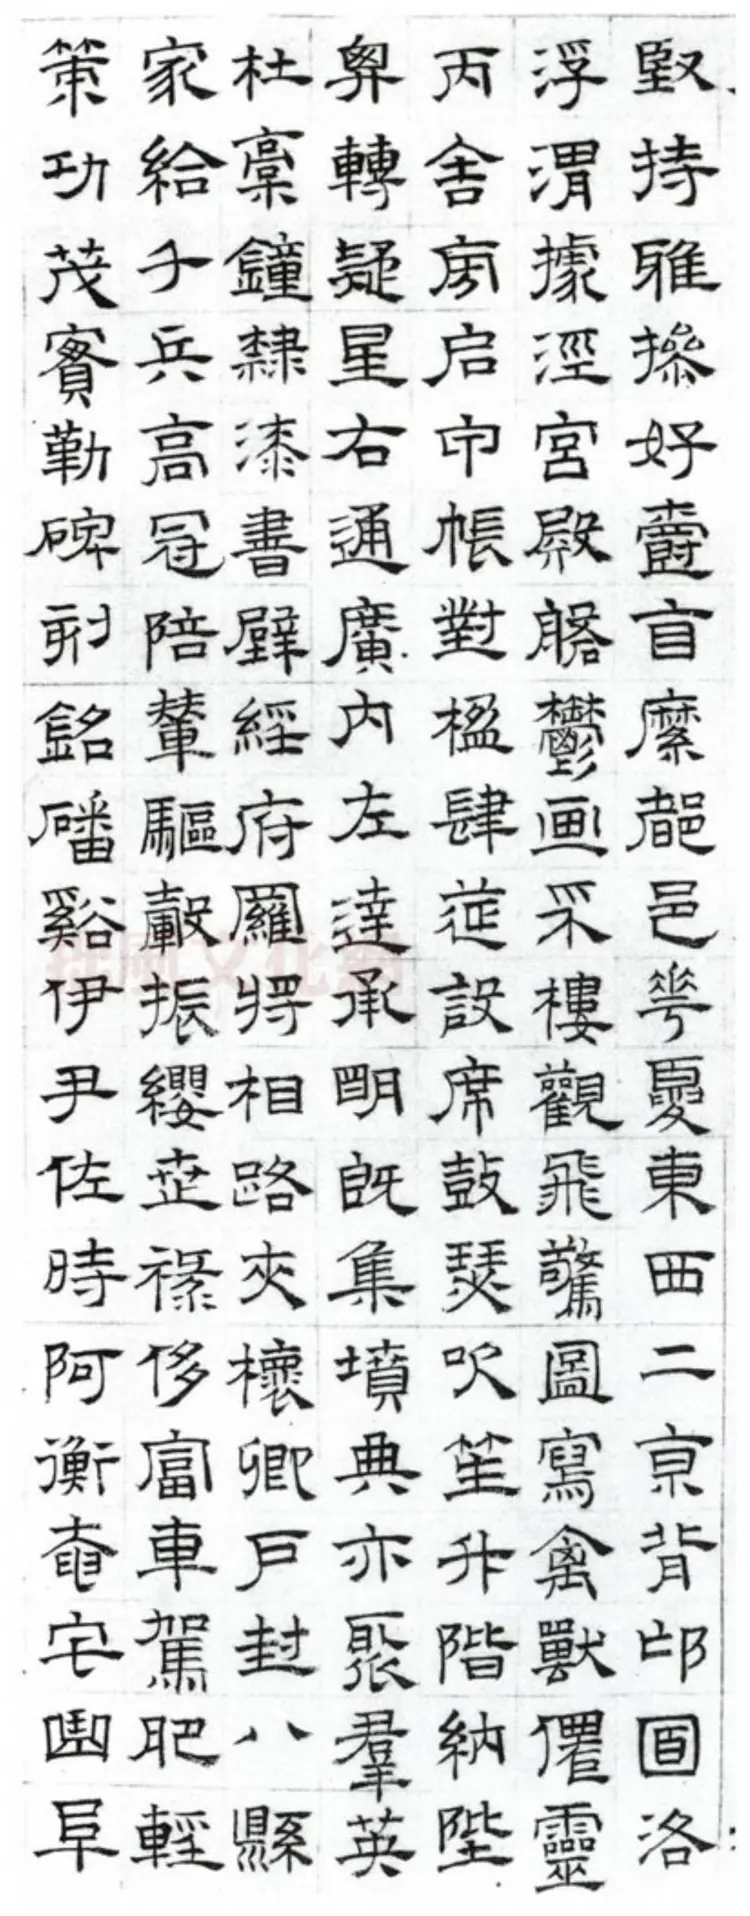 堅持雅操好爵自縻都邑華夏東西二京背邙面洛
浮渭據涇宮殿盤鬱画采樓觀飛驚圖寫禽獸僊靈
丙舍旁启甲帳對楹肆筵設席鼓瑟吹笙升階納陛
弁轉疑星右通廣內左達承明既集墳典亦聚羣英
杜稾鐘隸漆書壁經府羅將相路夾槐卿戶封八縣
家給千兵高冠陪輦驅轂振纓世祿侈富車駕肥輕
策功茂實勒碑刻銘磻谿伊尹佐時阿衡奄宅曲阜